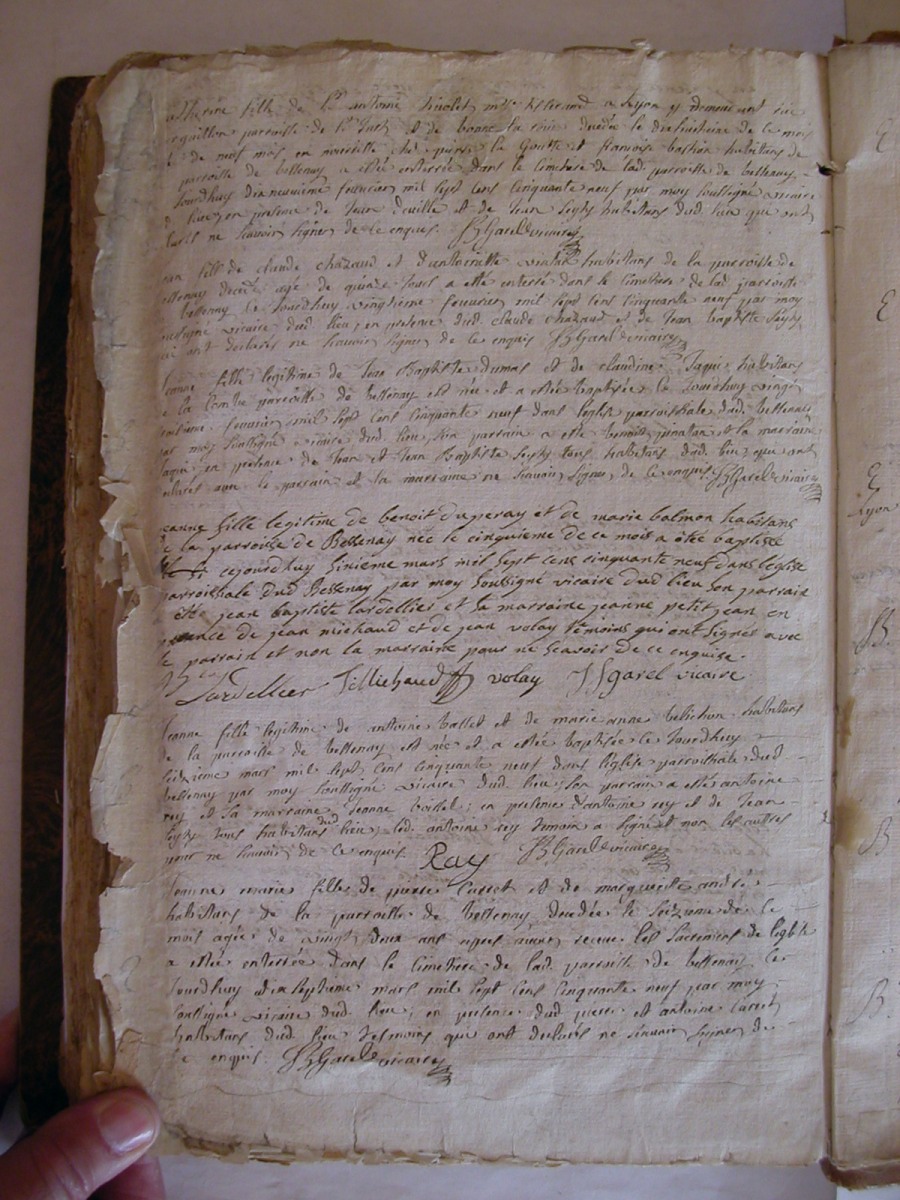 fille de Sr antoine a Lyon y demeurant rue
parroisse de St Just et de bonne decedée le dixhuitieme de ce mois
de neuf mois en nourrisse chez pierre la Goutte et francoise habitans de
parroisse de bessenay a estée enterrée dans le cimetiere de lad. parroisse de bessenay
jourdhuy dixneuvième fevrier mil sept cens cinquante neuf par moy soussigné vicaire
d. lieu, en presence de Jean et de Jean habitans dud. lieu qui ont
ne sçavoir signer de ce enquis. Garel vicaire
fils de claude chazaud et d'antoinette habitans de la parroisse de
bessenay decedé agé de quinze jours a esté enterré dans le cimetiere de lad. parroisse
bessenay ce jourdhuy vingtième fevrier mil sept cens cinquante neuf par moy
vicaire dud. lieu, en presence dud. claude chazaud et de Jean baptiste
qui ont declarés ne sçavoir signer de ce enquis Garel vicaire
fille legitime de Jean Baptiste dumas et de claudine habitans
de la parroisse de bessenay est née et a estée baptisée ce jourdhuy
fevrier mil sept cens cinquante neuf dans leglise parroissiale dud. bessenay
par moy soussigné vicaire dud. lieu, son parrain a esté et la marraine
en presence de Jean et Jean Baptiste tous habitans dud. lieu qui ont
le parrain et la marraine ne sçavoir signer de ce enquis. Garel vicaire
jeanne fille legitime de benoit duperay et de marie balmon habitans
de la parroisse de Bessenay née le cinquieme de ce mois a été baptisée
cejourdhuy sixieme mars mil sept cens cinquante neuf dans leglise
parroissiale dud Bessenay par moy soussigné vicaire dud lieu son parrain
été jean baptiste lardellier et sa marraine jeanne petit jean en
presence de jean michaud et de jean volay témoins qui ont signés avec
le parrain et non la marraine pour ne sçavoir de ce enquise.
Lardellier Michaud volay garel vicaire
Jeanne fille legitime de antoine et de marie anne habitans
de la parroisse de bessenay est née et a estée baptisée ce jourdhuy
seizieme mars mil sept cens cinquante neuf dans leglise parroissiale dud.
bessenay par moy soussigné vicaire dud. lieu, son parrain a esté antoine
rey et sa marraine Jeanne en presence d'antoine rey et de Jean
tous habitans dud. lieu, led. antoine rey temoin a signé et non les autres
pour ne sçavoir de ce enquis. Ray Garel vicaire
Jeanne marie fille de pierre Carret et de marguerite andré
habitans de la parroisse de bessenay decedée le seizieme de ce
mois agée de vingt deux ans apres avoir receue les sacremens de leglise
a estée enterrée dans le cimetiere de lad. parroisse de bessenay ce
jourdhuy dixseptieme mars mil sept cens cinquante neuf par moy
soussigné vicaire dud. lieu, en presence dud. pierre et antoine Carret
habitans dud. lieu temoins qui ont declarés ne sçavoir signer de
ce enquis. Garel vicaire
Lyon
B
B
B